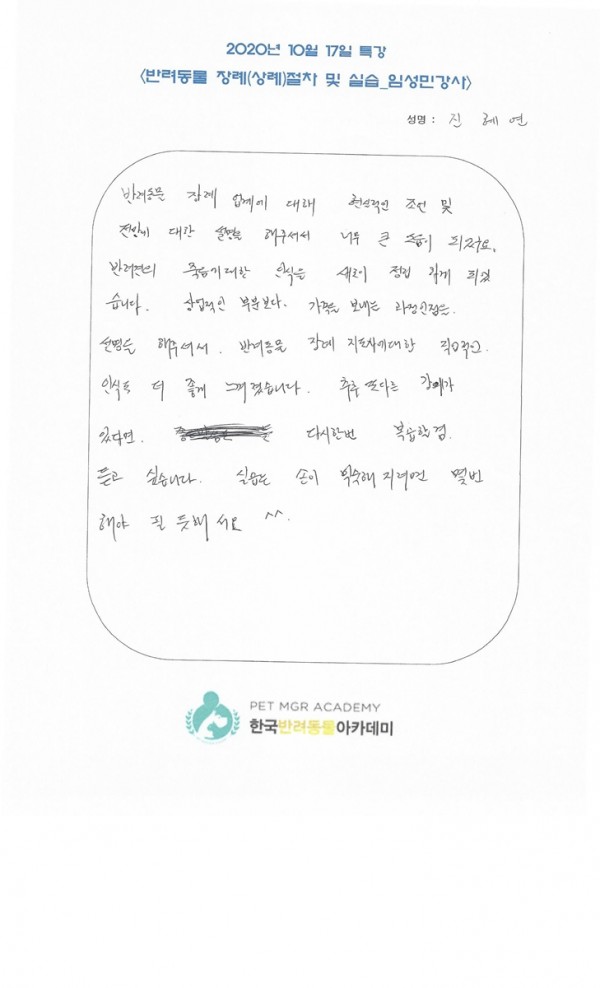 2020년 10월 17일 특강
<반려동물 장례(상례)절차 및 실습_임성민강사>
성명 : 진 혜 연
반려동물 장례 업계에 대해 현실적인 조언 및
전망에 대한 설명을 해주셔서 너무 큰 도움이 되어요.
반려견의 죽음에대한 인식을 새로이 정립 하게 되었
습니다. 상업적인 부분보다. 가족을 보내는 과정인점을.
설명을 해주셔서. 반려동물 장례 지도사에대한 직업적인.
인식도 더 좋게 느껴졌습니다. 추후 또다른 강의가
있다면. 다시한번 복습할겸.
듣고 싶습니다. 실습은 손이 익숙해 지려면 몇번
해야 될 듯해서요 ^^.
PET MGR ACADEMY
한국반려동물아카데미